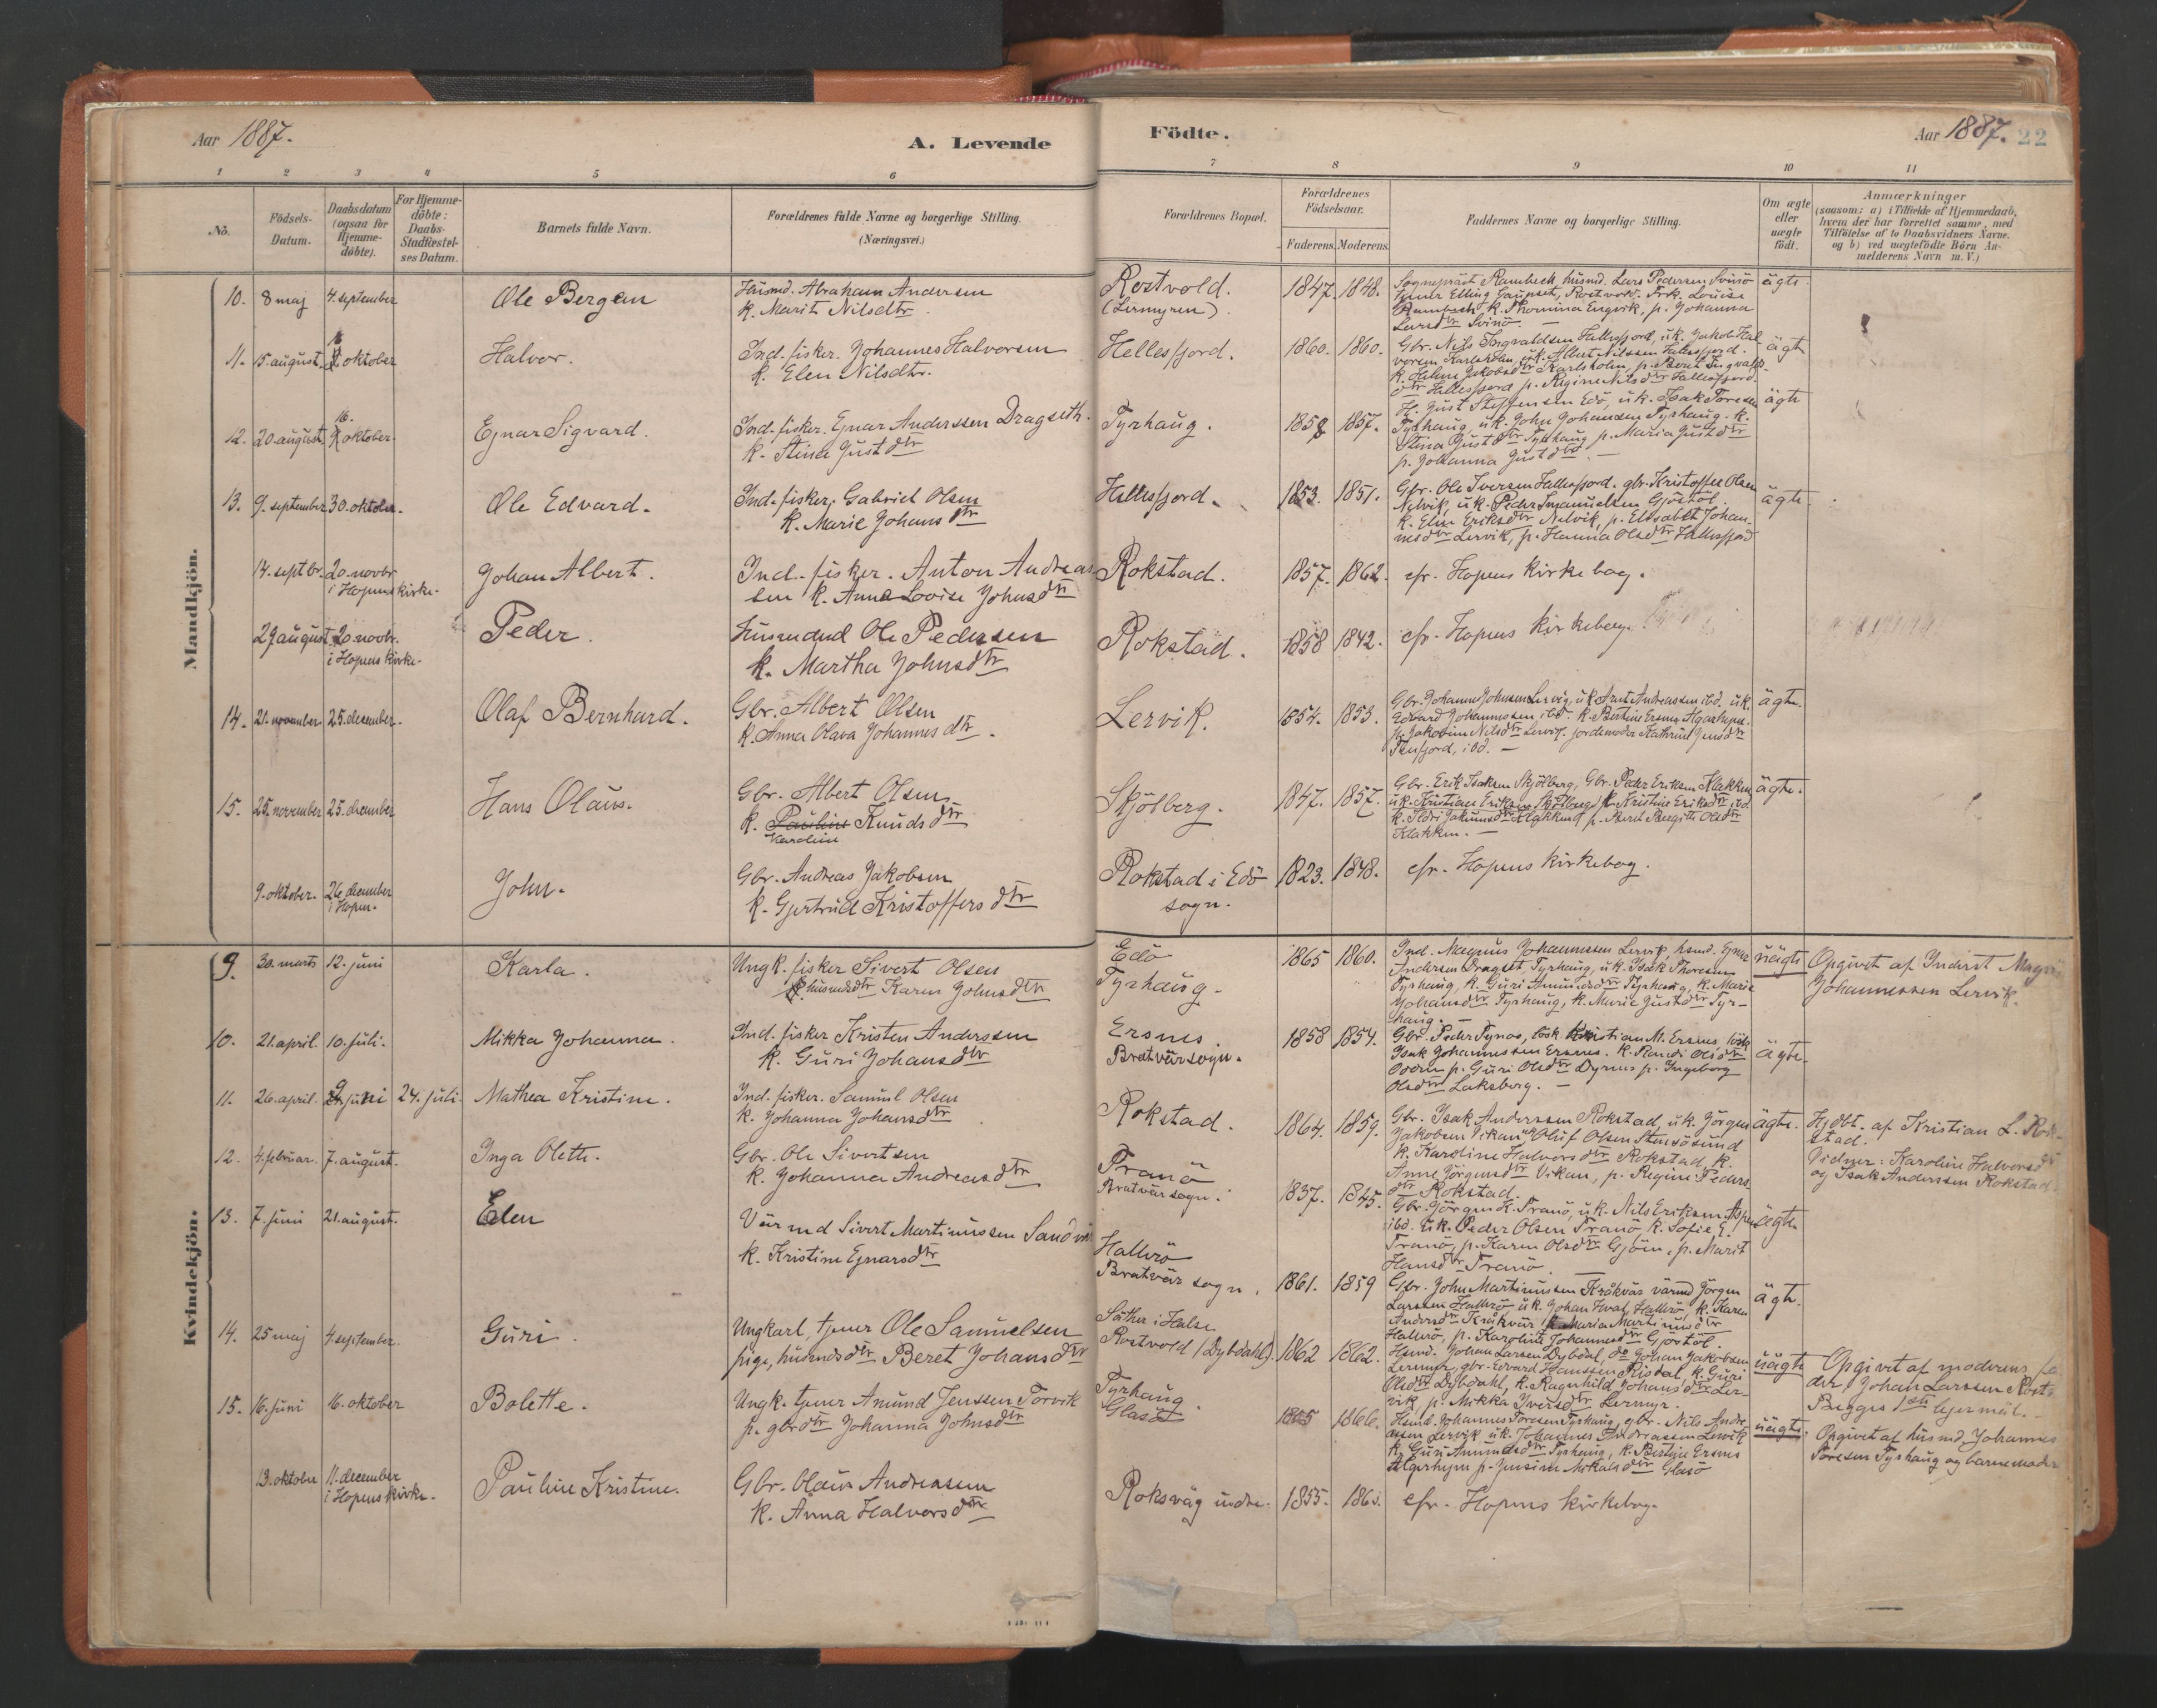 Aar 1887.
A. Levende
Födte.
Aar 1887. 22
1 2 3 4 5 6
7 8 9 10 11
No.
Födsels-Datum.
Daabsdatum (ogsaa for Hjemme-döbte).
For Hjemme-döbte: Daabs-Stadfæstel-ses Datum.
Barnets fulde Navn.
Forældrenes fulde Navne og borgerlige Stilling.
(Næringsvei.)
Forældrenes Bopæl.
Forældrenes Födselsaar.
Faderens. Moderens.
Faddernes Navne og borgerlige Stilling.
Om ægte eller uægte födt.
Anmærkninger
(saasom: a) i Tilfælde af Hjemmedaab,
hvem der har forrettet samme, med
Tilföielse af to Daabsvidners Navne.
og b) ved uægtefödte Börn An-
melderens Navn m. V.)
Mandkjön.
10. 8 maj 4. september Ole Bergan
Husmd. Abraham Andersen
k. Marit Nilsdtr.
Rostvold.
(Lermyren).
1847. 1848.
Sogneprest Rambech, husmd. Lars Pedersen Svinö
Elling Gaupset, Rostvold. Frk. Louise
Rambech k. Thomina Engvik, p. Johanna
Larsdtr Svinö. —
ägte
11. 15. august. 16 oktober Halvor.
Ind. fisker. Johannes Halvorsen
k. Elen Nilsdtr.
Hellesfjord. 1860. 1860.
Gbr. Nils Ingvaldsen Hellesfjord, u.k. Jakob Hal
vorsen Karlsholm, u.k. Albert Nilssen Hellesfjord.
k. Helene Jakobsdtr Karlsholm, p. Berit Ingvalds-
dtr Hellesfjord p. Regine Nilsdtr Hellesfjord.
ägte
12. 20. august 16. oktober. Ejnar Sigvard.
Ind. fisker. Ejnar Anderssen Dragseth.
k. Stina Justdtr
Tyrhaug. 1858 1857.
H. Just Steffensen Edö, u.k. Isak Toresen
Tyrhaug, u.k. John Johansen Tyrhaug. k.
Stina Justdtr Tyrhaug p. Maria Justdtr
p. Johanna Justdtr. —
ägte
13. 9. september 30. oktober. Ole Edvard.
Ind. fisker. Gabriel Olsen
k. Marie Johansdtr
Hellesfjord. 1853. 1851.
Gbr. Ole Iversen Hellesfjord. gbr. Kristoffer Olsen
Nelvik, u.k. Peder Smanuelsen Gjöstöl.
k. Elen Eriksdtr Nelvik, p. Elisabet Johan-
nesdtr Lervik, p. Hanna Olsdtr Hellesfjord
ägte
14. septbr. 20. novbr. i Hopens kirke. Johan Albert.
Ind. fisker. Anton Andreas
sen k. Anna Lovise Johnsdtr
Rokstad. 1857. 1862. cfr. Hopens kirkebog.
29 august 20. novbr. i Hopens kirke. Peder.
Husmand Ole Pedersen
k. Martha Johnsdtr
Rokstad. 1858 1842. cfr. Hopens kirkebog.
14. 21. november 25. december. Olaf Bernhard.
Gbr. Albert Olsen
k. Anna Olava Johannesdtr.
Lervik. 1854. 1853.
Gbr. Johannes Johnsen Lervig, u.k. Arnt Andreassen ibd. u.k.
Edvard Johannessen ibd. k. Bertine Ersnes Agerhejm.
p. Jakobine Nilsdtr Lervik. jordemoder Kathrine Jensdtr
Tenfjord, ibd. —
ägte.
15. 25. november 25. december Hans Olaus.
Gbr. Albert Olsen
k. Pauline Knudsdtr
Karoline
Skjölberg. 1847. 1857.
Gbr. Erik Isaksen Skjölberg, Gbr. Peder Eriksen Klakken
u.k. Kristian Eriksen Skjölberg, k. Kristine Eriksdtr ibd.
k. Ildri Jakunsdtr Klakken, p. Beret Bergitte Olsdtr
Klakken. —
ägte.
9. oktober. 26. december i Hopen. John.
Gbr. Andreas Jakobsen
k. Gjertrud Kristoffersdtr
Rokstad i Edö
sogn.
1823. 1848. cfr. Hopens kirkebog.
Kvindekjön.
9. 30. marts 12. juni Karla.
Ungk. fisker Sivert Olsen
husmdsdtr Karen Johnsdtr
Edö
Tyrhaug.
1865 1860.
Ind. Magnus Johannessen Lervik, hsmd. Ejnar
Andersen Dragset, Tyrhaug, u.k. Isak Thoresen
Tyrhaug, k. Guri Amundsdtr Tyrhaug, k. Marie
Johansdtr Tyrhaug, k. Marie Justdtr Tyr-
haug. —
uägte
Opgivet af Inderst Magnus
Johannessen Lervik.
10. 21. april. 10. juli. Mikka Johanna.
Ind. fisker Kristen Anderssen
k. Guri Johansdtr
Ersnes
Bratvärsogn.
1858 1854.
Gbr. Peder Tynes, lösk. Kristian M. Ersnes, lösk.
Isak Johannessen Ersnes. k. Randi Olsdtr
p. Guri Olsdtr Dyrnes p. Ingeborg
Olsdtr Laksberg. —
ägte.
11. 26. april. 9 juni 24. juli Mathea Kristine.
Ind. fisker. Samuel Olsen
k. Johanna Johansdtr
Rokstad. 1864. 1859.
Gbr. Isak Anderssen Rokstad, u.k. Jörgen
Jakobsen Vikan, u.k. Oluf Olsen Stensösund
k. Karoline Halvorsdtr Rokstad, k.
Anne Jörgensdtr Vikan, p. Regine Peders
dtr Rokstad.
ägte.
Hjdbt. af Kristian L. Rok-
stad.
Vidner: Karoline Halvorsdtr
og Isak Anderssen Rokstad.
12. 4. februar. 7. august. Inga Olette.
Gbr. Ole Sivertsen
k. Johanna Andreasdtr
Tranö
Bratvär sogn.
1837. 1845.
Gbr. Jörgen K. Tranö, u.k. Nils Eriksen Aspen
ibd. u.k. Peder Olsen Tranö, k. Sofie E.
Tranö, p. Karen Olsdtr Gjöen, p. Marit
Hansdtr Tranö.
ägte
13. 7. juni 21. august. Elen
Värmd Sivert Martinussen Sandvik
k. Kristine Ejnarsdtr
Hallvö
Bratvär sogn.
1861. 1859
Gbr. John Martinussen Kråkvär värmd Jörgen
Larssen Hallvö u.k. Johan Hval Hallvö, k. Karen
Andersdtr Kråkvär, k. Maria Martinusdtr
Hallvö, p. Karoline Johannesdtr Gjöstöl.
ägte.
14. 25 maj 4 september. Guri.
Ungkarl, tjener Ole Samuelsen
pige, husmdsdtr Beret Johansdtr
Säther i Halse
Rostvold (Dybdahl).
1862 1862.
Hsmd. Johan Larsen Dybdal, do Johan Jakobsen
Lermyr, gbr. Edvard Hanssen Risdal, k. Guri
Olsdtr Dybdahl, k. Ragnhild Johansdtr Ler-
vik, p. Mikka Iversdtr Lermyr.
uägte
Opgivet af moderens fa
der, Johan Larssen Rost
Begges 1ste lejermål. —
15. 16. juni 16. oktober Bolette.
Ungk. tjener Amund Jenssen Torvik
p. gbrdtr Johanna Johnsdtr
Tyrhaug
Glasö
1865 1866.
Hsmd. Johannes Toresen Tyrhaug, gbr. Nils Andre
assen Lervik u.k. Johannes Andreassen Lervik
k. Guri Amundsdtr Tyrhaug, k. Bertine Ersnes
Algerhejm p. Jensine Mikalsdtr Glasö
uägte.
Opgivet af husmd Johannes
Toresen Tyrhaug og barnemoder
13. oktober 11. december i Hopens kirke. Pauline Kristine.
Gbr. Olaus Andreassen
k. Anna Halvorsdtr
Roksväg indre. 1855. cfr. Hopens kirkebog.